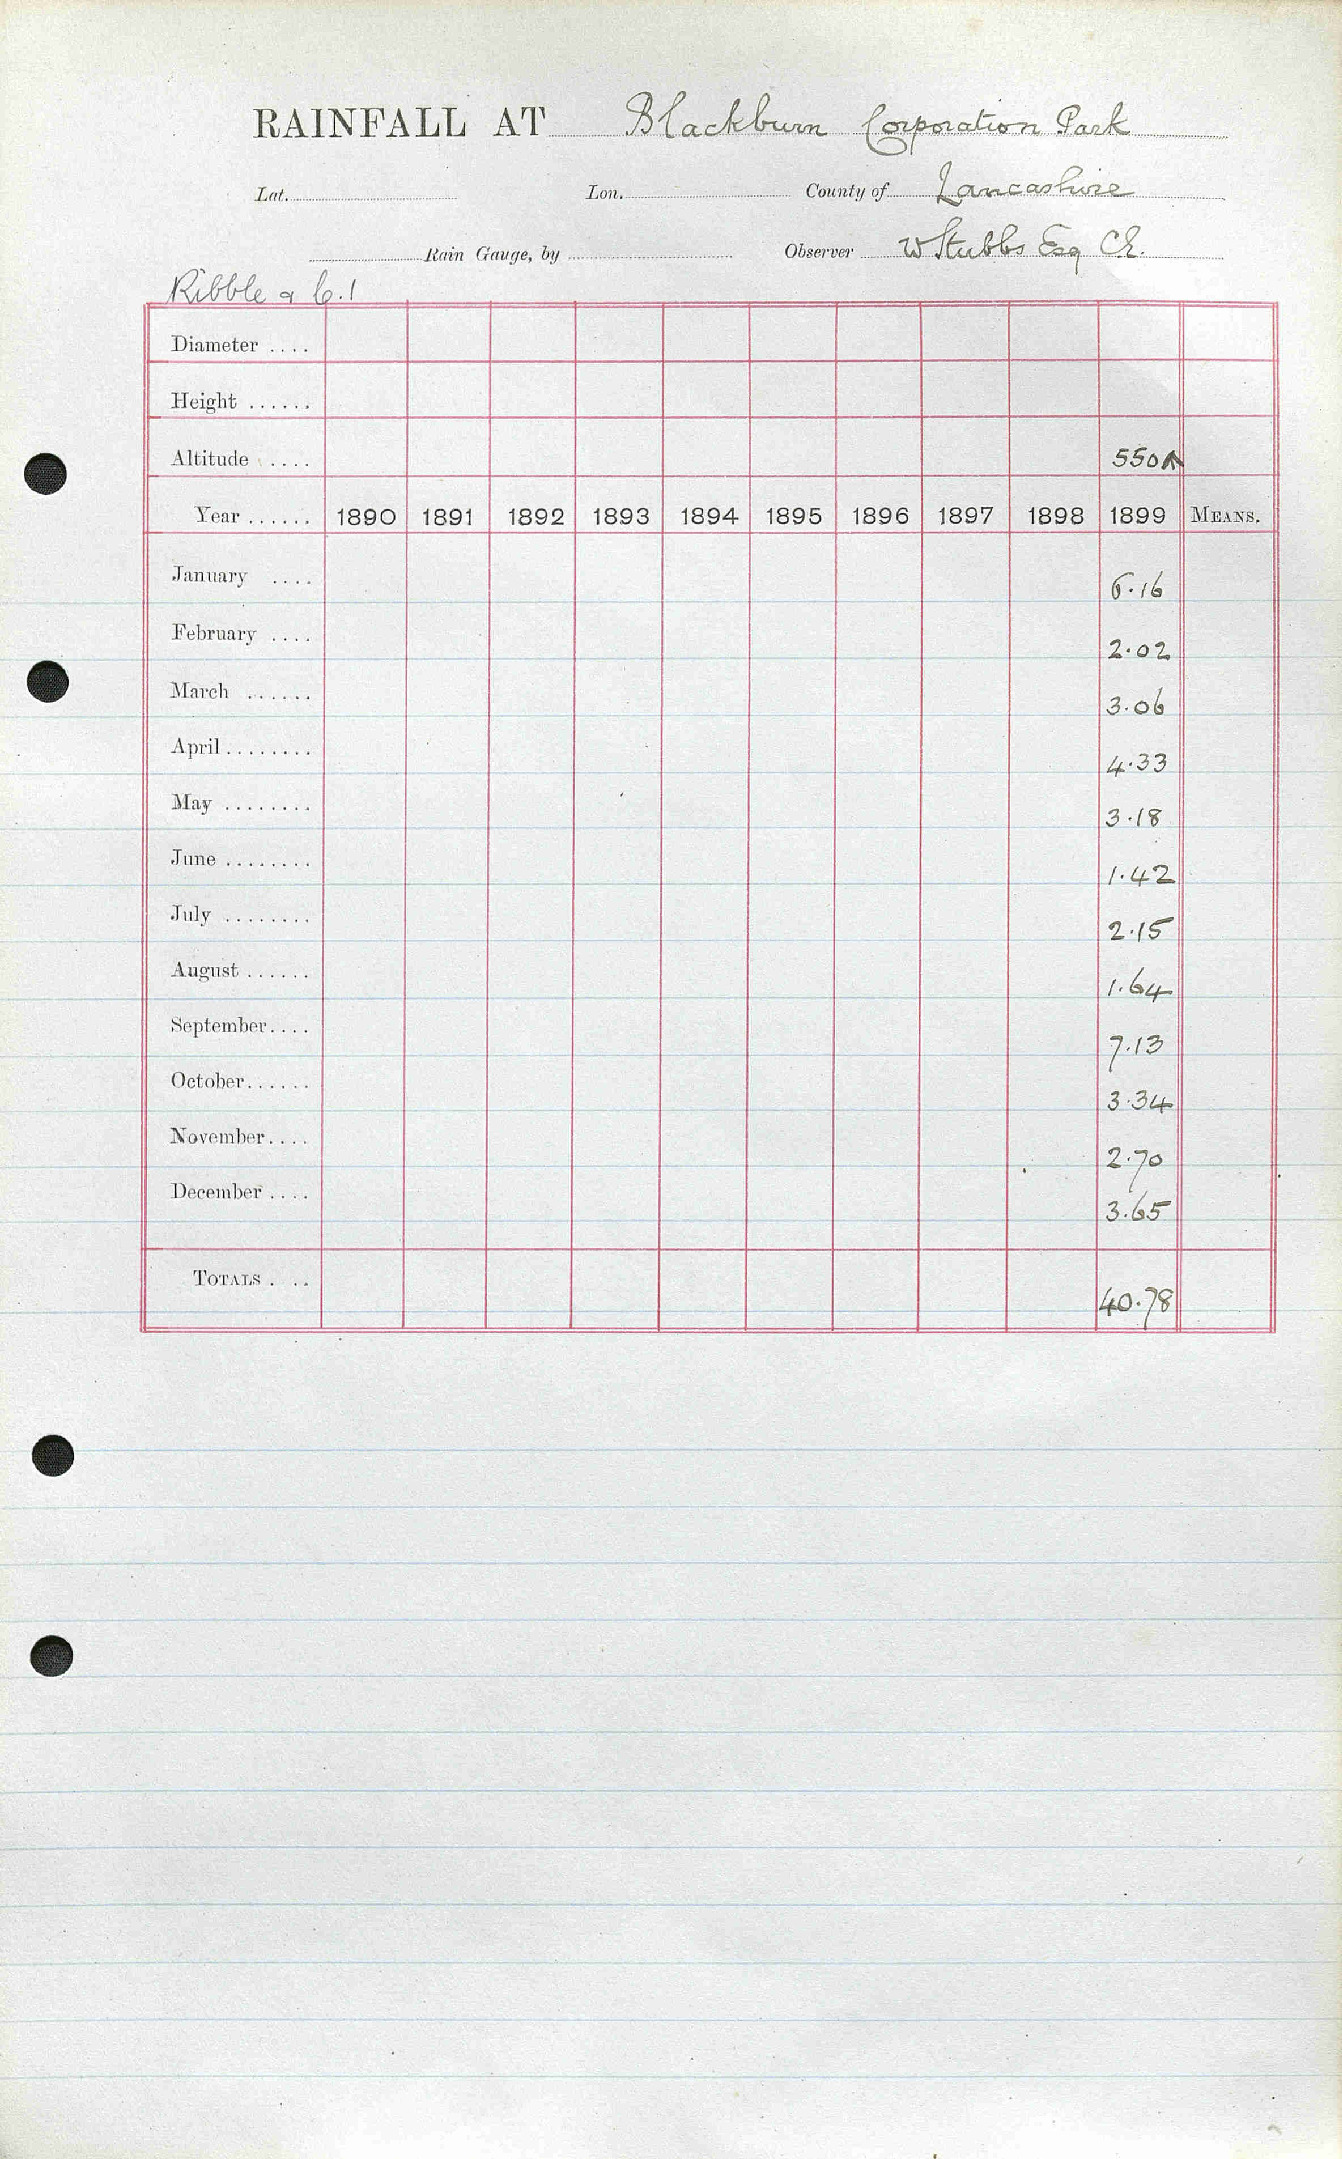 RAINFALL AT Blackburn Corporation Park
Lat. Lon. County of Lancashire
Rain Gauge, by Observer W Stubbs Esq CE.
Ribble & C.1
Diameter ....
Height ......
Altitude .... 550
Year ...... 1890 1891 1892 1893 1894 1895 1896 1897 1898 1899 MEANS.
January .... 6.16
February .... 2.02
March ...... 3.06
April ........ 4.33
May ........ 3.18
June ........ 1.42
July ........ 2.15
August ...... 1.64
September.... 7.13
October...... 3.34
November.... 2.70
December .... 3.65
TOTALS . .. 40.78